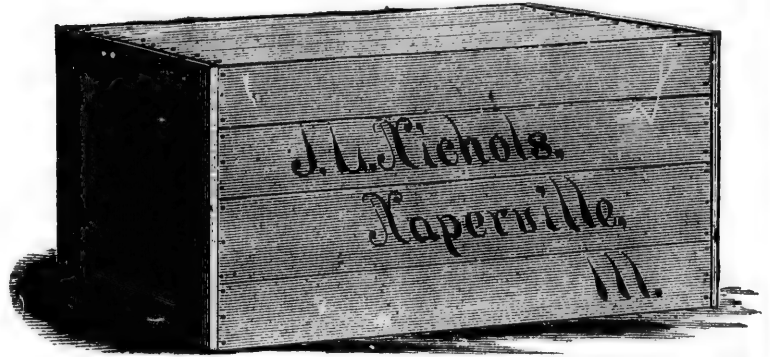 J. L. Nichols,
Naperville,
Ill.